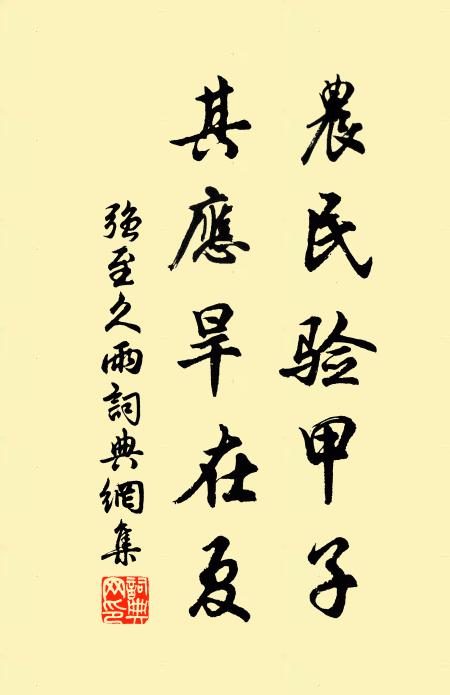 農民验甲子
其應旱在夏
强至久雨詞典網集
詞典網印